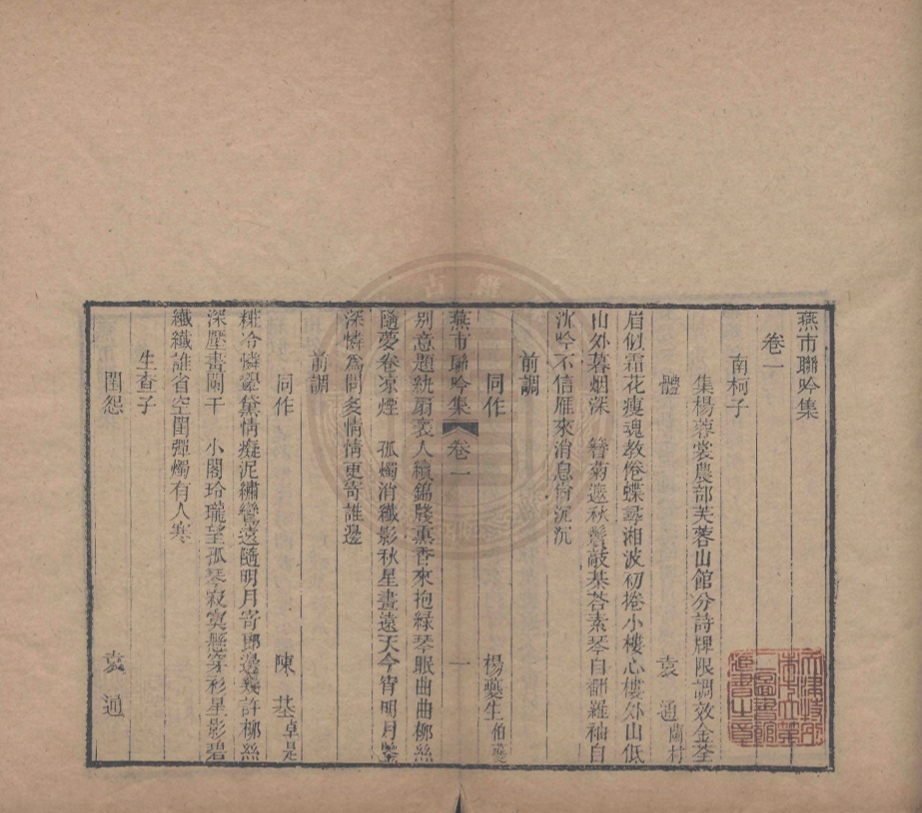 燕市聯吟集
卷一
南柯子
集楊蓉裳農部芙蓉山館分詩牌限調效金荃
體 袁通蘭村
眉似霜花瘦魂教倦蝶尋湘波初捲小樓心樓外山低
山外暮烟深 簪菊遮秋鬢敲棊荅素琴自翻羅袖自
沈吟不信雁來消息尙沉沉
前調
同作 楊夔生伯夔
燕市聯吟集 卷一 一
別意題紈扇裒人織錦牋熏香來抱綠琴眠曲曲柳絲
隨夢卷凉煙 孤燭消纖影秋星畫遠天今宵明月鑒
深憐爲問多情情更寄誰邊
前調
同作 陳基卓是
糚冷憐鬟黛情癡泥繡鸞遠隨明月寄郎邊幾許柳絲
深壓畫闌干 小閣玲瓏望孤琴寂寞懸穿衫星影碧
纖纖誰省空閨彈燭有人寒
生查子
閨怨 袁通